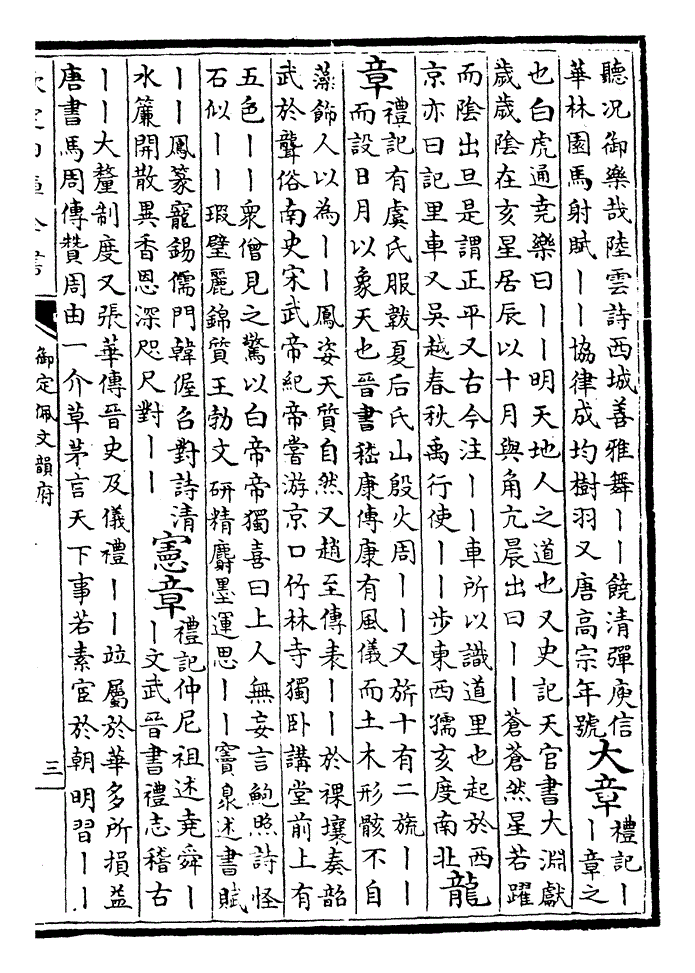 聽況御樂哉陸雲詩西城善雅舞丨丨饒清彈庾信
華林園馬射賦丨丨協律成均樹羽又唐高宗年號
大章
禮記丨
丨章之
也白虎通堯樂曰丨丨明天地人之道也又史記天官書大淵獻
歲歲陰在亥星居辰以十月與角亢晨出曰丨丨蒼蒼然星若躍
而陰出旦是謂正平又古今注丨丨車所以識道里也起於西
京亦曰記里車又吳越春秋禹行使丨丨步東西孺亥度南北
龍
章
禮記有虞氏服韍夏后氏山殷火周丨丨又旂十有二旒丨丨
而設日月以象天也晉書嵇康傳康有風儀而土木形骸不自
藻飾人以為丨丨鳳姿天質自然又趙至傳表丨丨於裸壤奏韶
武於聾俗南史宋武帝紀帝嘗游京口竹林寺獨卧講堂前上有
五色丨丨衆僧見之驚以白帝帝獨喜曰上人無妄言鮑照詩怪
石似丨丨瑕璧麗錦質王勃文研精麝墨運思丨丨竇臮述書賦
丨丨鳳篆寵錫儒門韓偓召對詩清
水簾開散異香恩深咫尺對丨丨
憲章
禮記仲尼祖述堯舜丨
丨文武晉書禮志稽古
丨丨大釐制度又張華傳晉史及儀禮丨丨竝屬於華多所損益
唐書馬周傳贊周由一介草茅言天下事若素宦於朝明習丨丨
御定佩文韻府
三